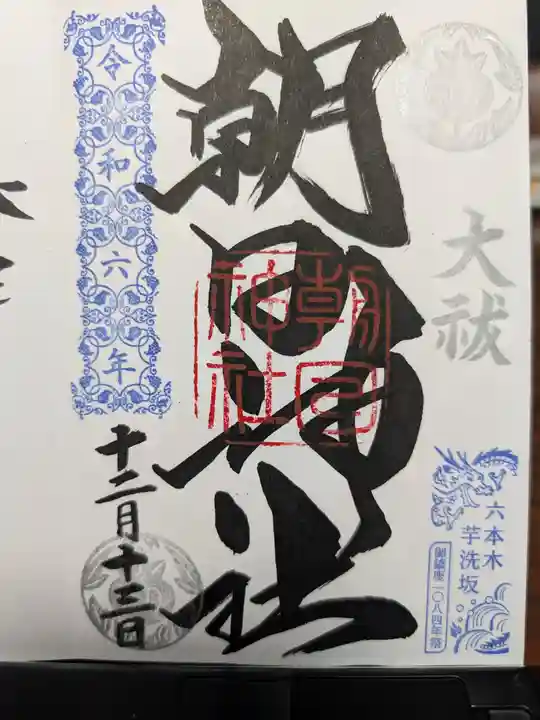 大祓
六本木
芋洗坂
御鎮座一〇八四年祭
朝日神社
朝日
神社
令和六年
十二月十三日